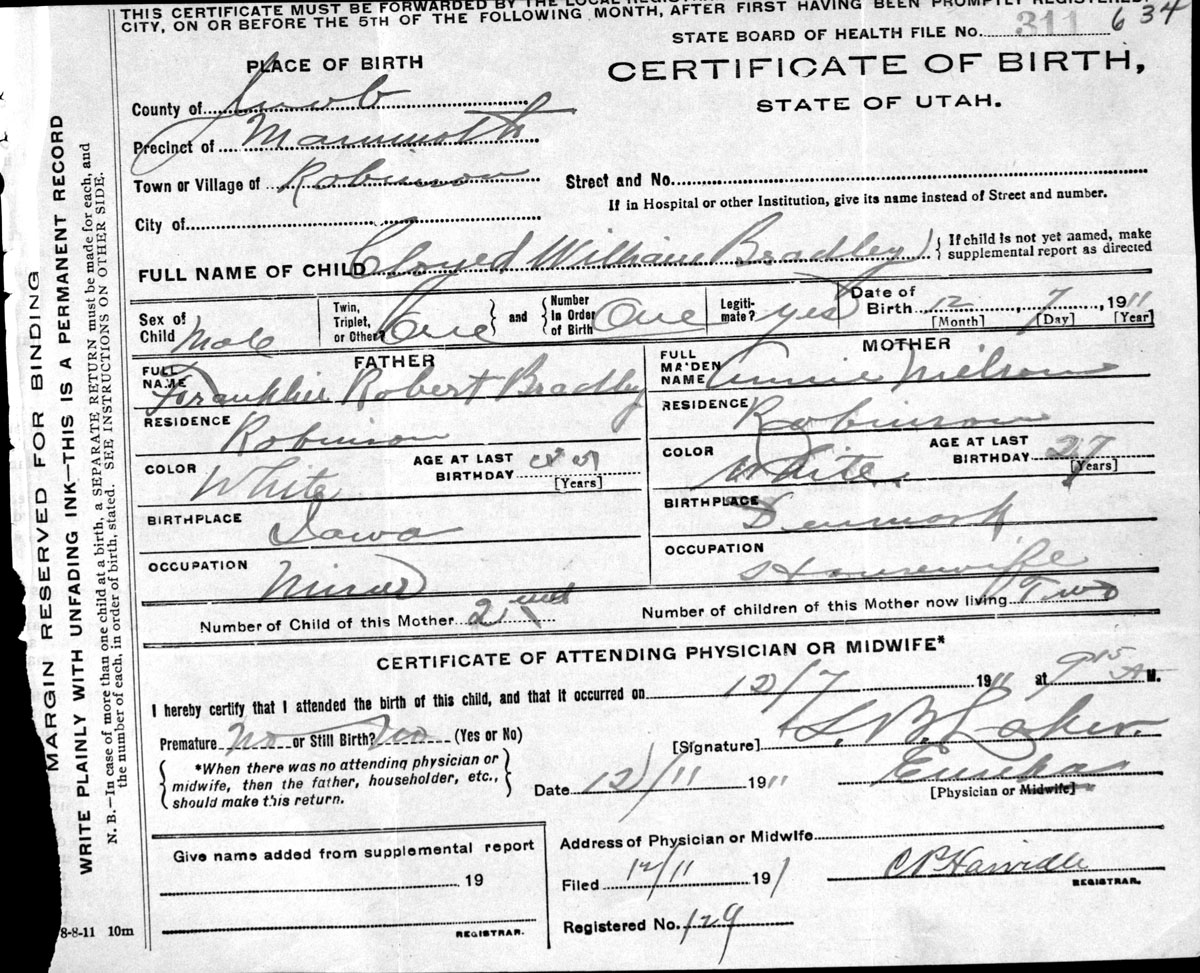 THIS CERTIFICATE MUST BE FORWARDED BY THE LOCAL
CITY, ON OR BEFORE THE 5TH OF THE FOLLOWING MONTH, AFTER FIRST HAVING BEEN PROMPTLY REGISTERED.
STATE BOARD OF HEALTH FILE No. 311 634
PLACE OF BIRTH
CERTIFICATE OF BIRTH,
STATE OF UTAH.
County of Juab
Precinct of Mammoth
Town or Village of Robinson
Street and No.
If in Hospital or other Institution, give its name instead of Street and number.
City of
FULL NAME OF CHILD William Bradley
If child is not yet named, make
supplemental report as directed
Sex of
Child Male
Twin,
Triplet,
or Other? One
and
Number
In Order
of Birth One
Legiti-
mate? yes
Date of
Birth 12 7, 1911
[Month] [Day] [Year]
FATHER
FULL
NAME Franklin Robert Bradley
RESIDENCE Robinson
COLOR White
AGE AT LAST
BIRTHDAY
[Years]
BIRTHPLACE Iowa
OCCUPATION Miner
MOTHER
FULL
MAIDEN
NAME Annie Nielson
RESIDENCE Robinson
COLOR White
AGE AT LAST
BIRTHDAY 27
[Years]
BIRTHPLACE Denmark
OCCUPATION Housewife
Number of Child of this Mother 2
Number of children of this Mother now living Two
CERTIFICATE OF ATTENDING PHYSICIAN OR MIDWIFE*
I hereby certify that I attended the birth of this child, and that it occurred on 12/7 1911 at 9 15 A M.
Premature No or Still Birth? No (Yes or No)
[Signature]
*When there was no attending physician or
midwife, then the father, householder, etc.,
should make this return.
Date 12/11 1911
Eureka
[Physician or Midwife]
Give name added from supplemental report
19
REGISTRAR.
Address of Physician or Midwife
Filed 12/11 191
REGISTRAR.
Registered No. 129
8-8-11 10m
MARGIN RESERVED FOR BINDING
WRITE PLAINLY WITH UNFADING INK—THIS IS A PERMANENT RECORD
N. B.—In case of more than one child at a birth, a SEPARATE RETURN must be made for each, and
the number of each, in order of birth, stated. SEE INSTRUCTIONS ON OTHER SIDE.